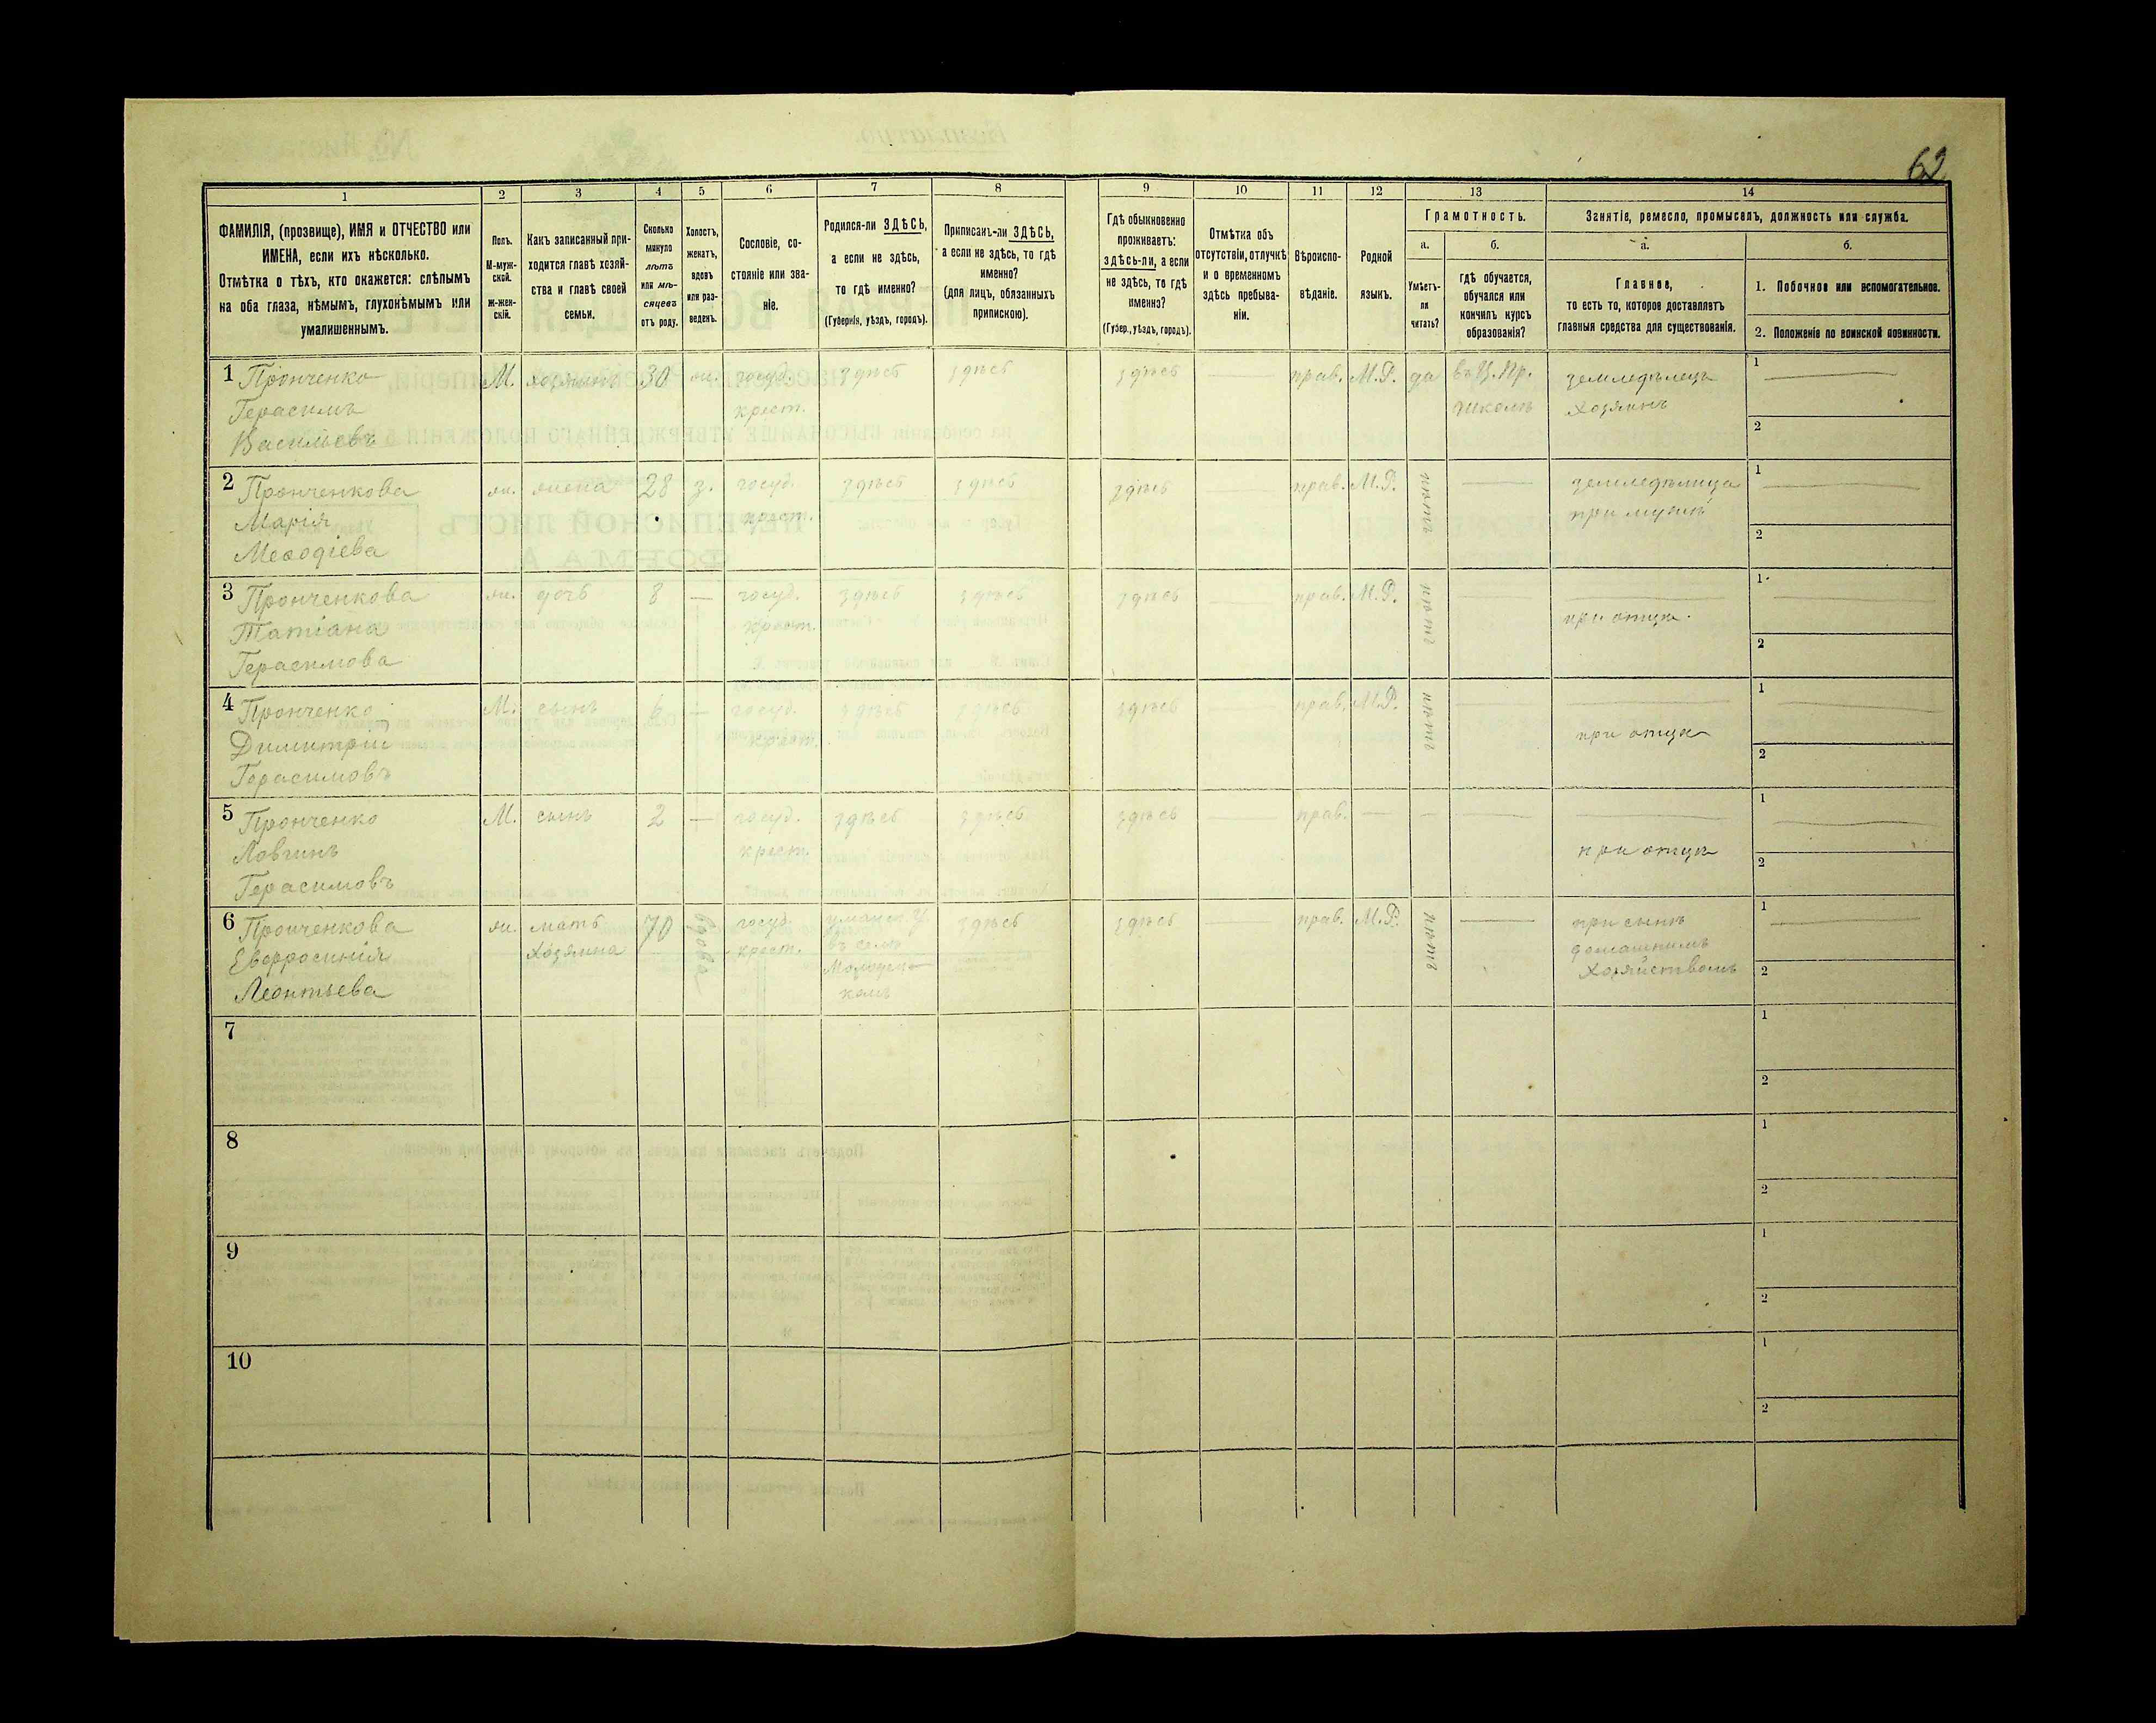 62
1
2
3
4
5
6
7
8
9
10
11
12
13
14
ФАМИЛІЯ, (прозвище), ИМЯ и ОТЧЕСТВО или
ИМЕНА, если ихъ нѣсколько.
Отмѣтка о тѣхъ, кто окажется: слѣпымъ
на оба глаза, нѣмымъ, глухонѣмымъ или
умалишеннымъ.
Полъ.
М-муж-
ской.
ж-жен-
скій.
Какъ записанный при-
ходится главѣ хозяй-
ства и главѣ своей
семьи.
Сколько
минуло
лѣтъ
или мѣ-
сяцевъ
отъ роду.
Холостъ,
женатъ,
вдовъ
или раз-
веденъ.
Сословіе, со-
стояніе или зва-
ніе.
Родился-ли ЗДѢСЬ,
а если не здѣсь,
то гдѣ именно?
(Губернія, уѣздъ, городъ).
Приписанъ-ли ЗДѢСЬ,
а если не здѣсь, то гдѣ
именно?
(для лицъ, обязанныхъ
припискою).
Гдѣ обыкновенно
проживаетъ:
здѣсь-ли, а если
не здѣсь, то гдѣ
именно?
(Губер., уѣздъ, городъ).
Отмѣтка объ
отсутствіи, отлучкѣ
и о временномъ
здѣсь пребыва-
ніи.
Вѣроиспо-
вѣданіе.
Родной
языкъ.
Грамотность.
а.
Умѣетъ-
ли
читать?
б.
гдѣ обучается,
обучался или
кончилъ курсъ
образованія?
Занятіе, ремесло, промыселъ, должность или служба.
а.
Главное,
то есть то, которое доставляетъ
главныя средства для существованія.
б.
1. Побочное или вспомогательное.
2. Положеніе по воинской повинности.
1 Пронченко М. хозяинъ 30 ж. госуд. здѣсь здѣсь здѣсь прав. М.Р. да въ Ц. пр. земледѣлецъ 1
Герасимъ крест. школѣ хозяинъ
Васильевъ 2
2 Пронченкова ж. жена 28 з. госуд. здѣсь здѣсь здѣсь прав. М.Р. нѣтъ земледѣлица 1
Марія крест. при мужѣ
Меѳодіева 2
3 Пронченкова ж. дочь 8 — госуд. здѣсь здѣсь здѣсь прав. М.Р. нѣтъ 1
Татіана крест. при отцѣ.
Герасимова 2
4 Пронченко М. сынъ 6 — госуд. здѣсь здѣсь здѣсь прав. М.Р. нѣтъ 1
Димитрій крест. при отцѣ
Герасимовъ 2
5 Пронченко М. сынъ 2 — госуд. здѣсь здѣсь здѣсь прав. — — 1
Логинъ крест. при отцѣ
Герасимовъ 2
6 Пронченкова ж. мать 70 вдова госуд. уманск. у. здѣсь здѣсь прав. М.Р. нѣтъ при сынѣ 1
Евфросинія хозяина крест. въ селѣ домашнимъ
Леонтьева хозяйствомъ 2
7 1
2
8 1
2
9 1
2
10 1
2